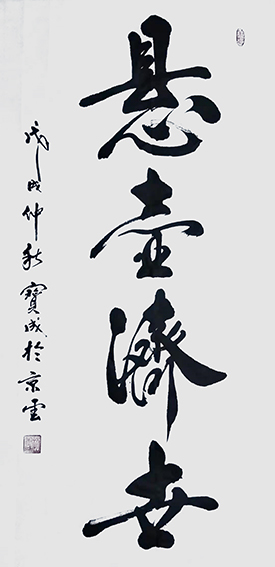 悬壶濟世
戊戌仲秋寶成於京雲